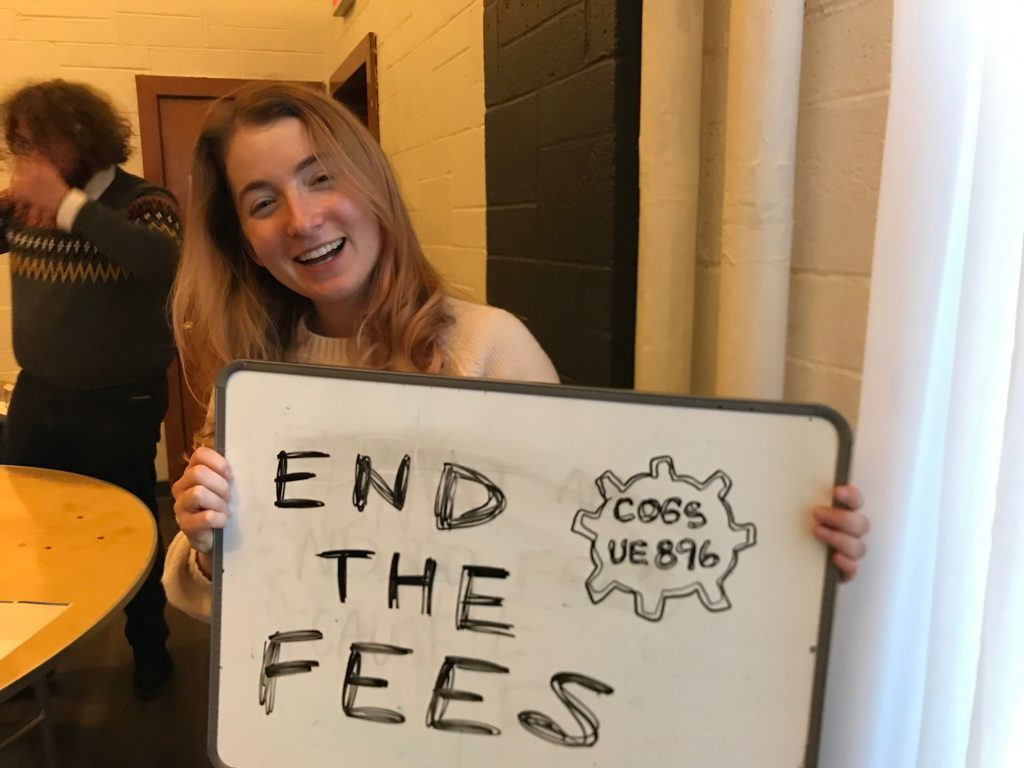 END
THE
FEES
COGS
UE896